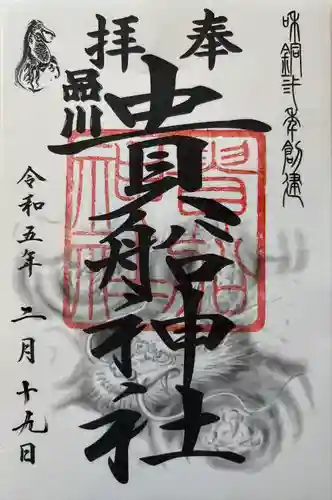 和銅二年創建
奉拝
品川
貴船神社
貴船神社
令和五年二月十九日